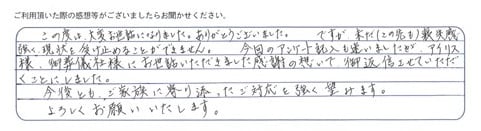 ご利用頂いた際の感想等がございましたらお聞かせください。
この度は、大変お世話になりました。ありがとうございました。 ですが、未だ(この先も)喪失感
強く、現状を受け止めることができません。 今回のアンケート記入も迷いましたが、アイリス
様、御葬儀社様にお世話いただきました感謝の想いで、御返信させていただ
くことにしました。
今後とも、ご家族に寄り添ったご対応を強く望みます。
よろしくお願いいたします。